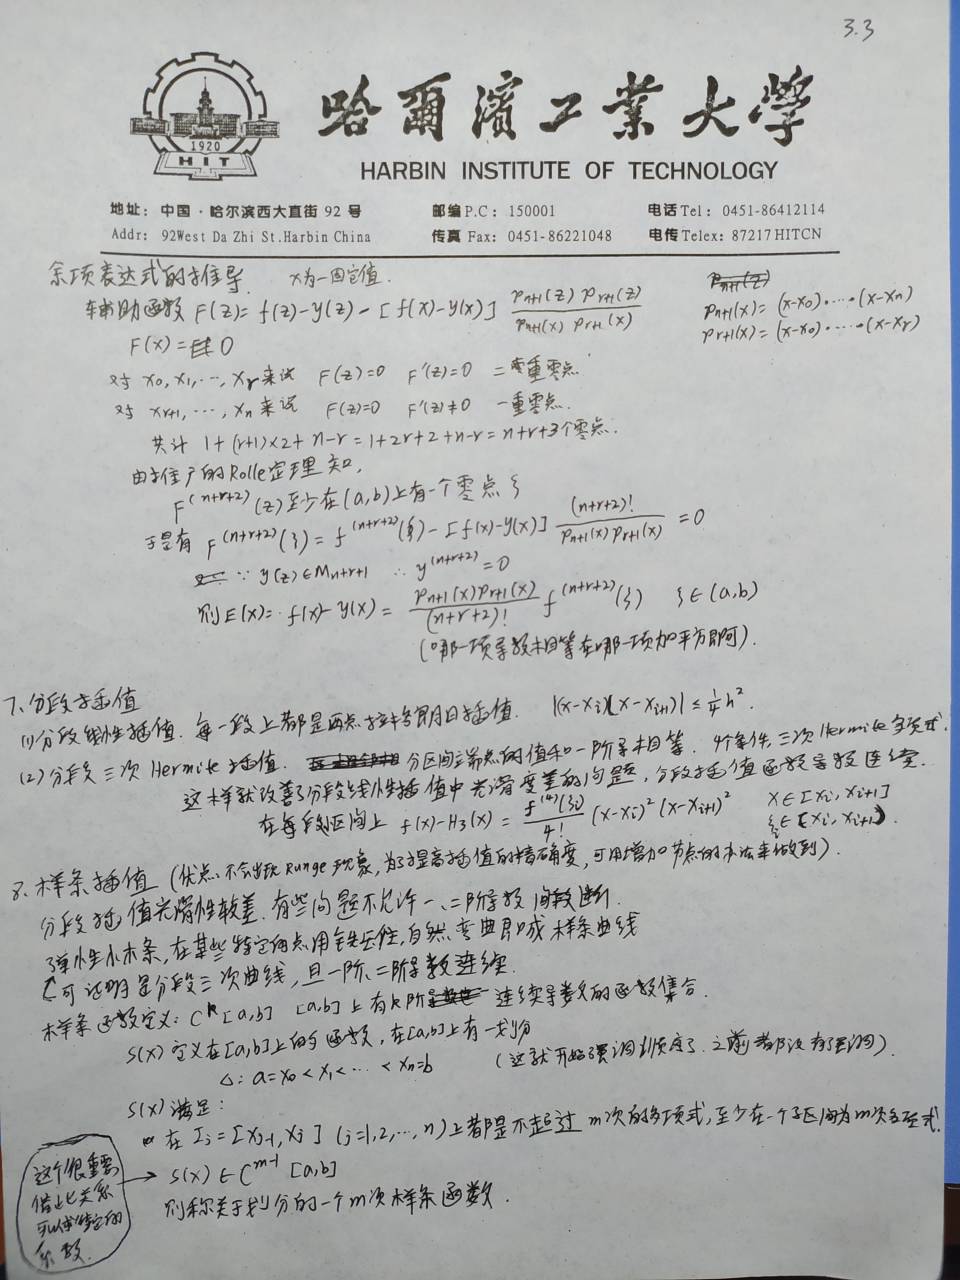 3.3
哈爾濱工業大學
1920
HIT
HARBIN INSTITUTE OF TECHNOLOGY
地址：中国·哈尔滨西大直街 92 号 邮编 P.C：150001 电话 Tel：0451-86412114
Addr：92West Da Zhi St.Harbin China 传真 Fax：0451-86221048 电传 Telex：87217 HITCN
余项表达式的推导. x为一固定值.
辅助函数 F(z)=f(z)-y(z)-[f(x)-y(x)] Pn+1(z) Pr+1(z) / Pn+1(x) Pr+1(x)
Pn+1(x)=(x-x0)·…·(x-xn)
Pr+1(x)=(x-x0)·…·(x-xr)
F(x)=0
对 x0,x1,…,xr来说 F(z)=0 F'(z)=0 二重零点.
对 xr+1,…,xn来说 F(z)=0 F'(z)≠0 一重零点.
共计 1+(r+1)×2+n-r=1+2r+2+n-r=n+r+3个零点.
由推广的Rolle定理知,
F^(n+r+2)(z)至少在(a,b)上有一个零点ξ
于是有 F^(n+r+2)(ξ)=f^(n+r+2)(ξ)-[f(x)-y(x)] (n+r+2)! / Pn+1(x)Pr+1(x) =0
∵ y(z)∈Mn+r+1 ∴ y^(n+r+2)=0
则E(x)=f(x)-y(x)= Pn+1(x)Pr+1(x) / (n+r+2)! f^(n+r+2)(ξ) ξ∈(a,b)
(哪一项导数相等在哪一项加平方即可).
7.分段插值
(1)分段线性插值.每一段上都是两点拉格朗日插值. |(x-xi)(x-xi+1)|≤¼h².
(2)分段三次Hermite插值. 分区间端点的值和一阶导相等. 4个条件,三次Hermite多项式.
这样就改善了分段线性插值中光滑度差的问题,分段插值函数导数连续.
在每段区间上 f(x)-H3(x)= f^(4)(ξi) / 4! (x-xi)²(x-xi+1)² x∈[xi,xi+1]
ξi∈[xi,xi+1].
8.样条插值(优点:不会出现Runge现象,为了提高插值的精确度,可用增加节点的办法来做到).
分段插值光滑性较差.有些问题不允许一、二阶导数间断.
弹性小木条,在某些特定的点用铁压住,自然弯曲即成样条曲线
可证明是分段三次曲线,且一阶、二阶导数连续.
样条函数定义: C^k[a,b] [a,b]上有k阶连续导数的函数集合.
S(x)定义在[a,b]上的函数,在[a,b]上有一划分
Δ: a=x0<x1<…<xn=b (这就开始强调顺序了.之前都没有强调).
S(x)满足:
在 Ij=[xj-1,xj] (j=1,2,…,n)上都是不超过m次的多项式,至少在一个子区间为m次多项式.
S(x)∈C^m-1[a,b]
则称关于划分的一个m次样条函数.
这个很重要
借此关系
可以求特定的
系数.